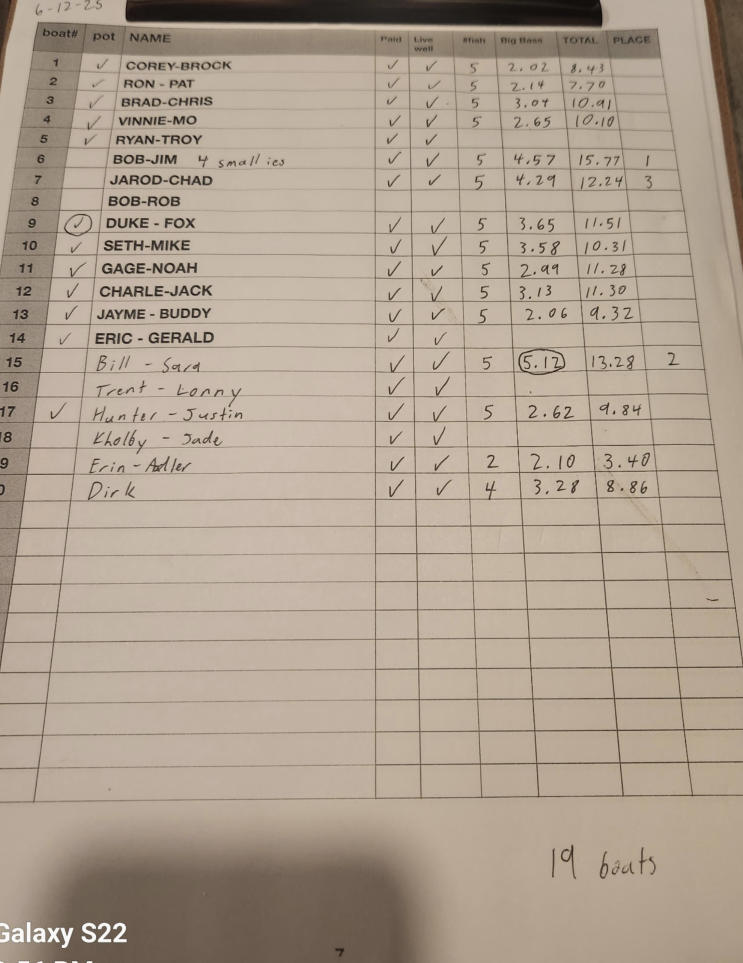 6-12-25
boat# pot NAME Paid Live well #fish Big Bass TOTAL PLACE
1 ✓ COREY-BROCK ✓ ✓ 5 2.02 8.43
2 ✓ RON - PAT ✓ ✓ 5 2.14 7.70
3 ✓ BRAD-CHRIS ✓ ✓ 5 3.07 10.91
4 ✓ VINNIE-MO ✓ ✓ 5 2.65 10.10
5 ✓ RYAN-TROY ✓ ✓
6 BOB-JIM 4 smallies ✓ ✓ 5 4.57 15.77 1
7 JAROD-CHAD ✓ ✓ 5 4.29 12.24 3
8 BOB-ROB
9 ✓ DUKE - FOX ✓ ✓ 5 3.65 11.51
10 ✓ SETH-MIKE ✓ ✓ 5 3.58 10.31
11 ✓ GAGE-NOAH ✓ ✓ 5 2.99 11.28
12 ✓ CHARLE-JACK ✓ ✓ 5 3.13 11.30
13 ✓ JAYME - BUDDY ✓ ✓ 5 2.06 9.32
14 ✓ ERIC - GERALD ✓ ✓
15 Bill - Sara ✓ ✓ 5 5.12 13.28 2
16 Trent - Lonny ✓ ✓
17 ✓ Hunter - Justin ✓ ✓ 5 2.62 9.84
8 Kholby - Jade ✓ ✓
9 Erin - Adler ✓ ✓ 2 2.10 3.40
0 Dirk ✓ ✓ 4 3.28 8.86
19 boats
Galaxy S22
7